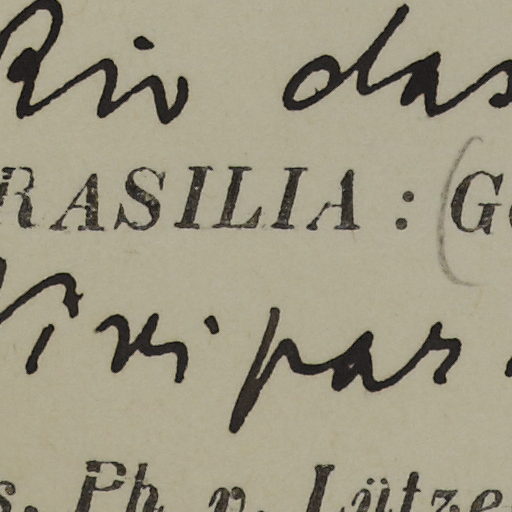 Rio das
RASILIA : (G
Vivipar
s. Ph. v. Lütze